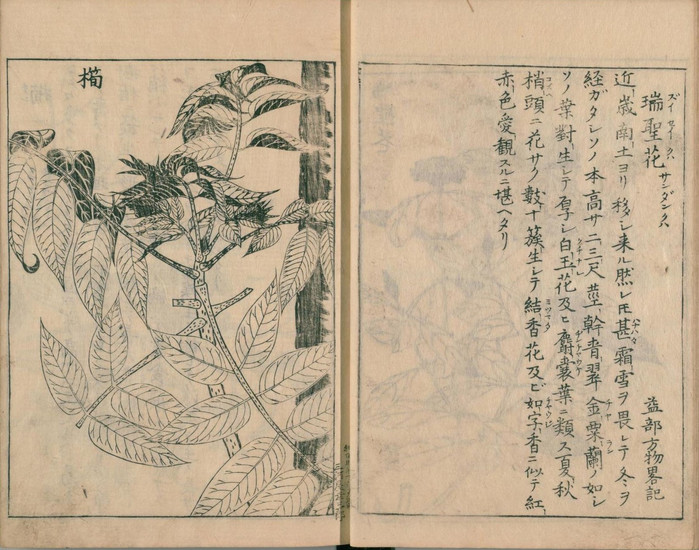 瑞聖花 ズイセイクハ サンダンクハ 益部方物畧記
近歳南土ヨリ移シ来ル然レ𪜈甚霜雪ヲ畏レテ冬ヲ
経ガタシソノ本高サ二三尺茎幹青翠金粟蘭ノ如シ
ソノ葉對生シテ厚シ白玉花及ヒ麝嚢葉ニ類ス夏秋
梢頭ニ花サク數十簇生シテ結香花及ビ如字香ニ似テ紅
赤色愛観スルニ堪ヘタリ
櫤